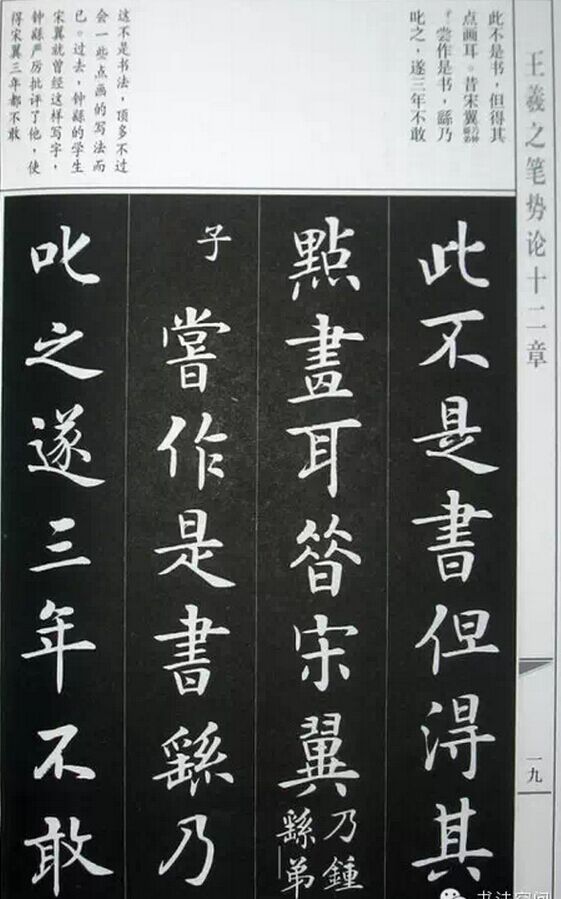 王羲之笔势论十二章
此不是书，但得其
点画耳。昔宋翼乃钟繇弟
子。尝作是书，繇乃
叱之，遂三年不敢
这不是书法，顶多不过
会一些点画的写法而
已。过去，钟繇的学生
宋翼就曾经这样写字，
钟繇严厉批评了他，使
得宋翼三年都不敢
此不是書但得其
點畫耳昝宋翼乃鍾繇弟
子嘗作是書繇乃
叱之遂三年不敢
一九